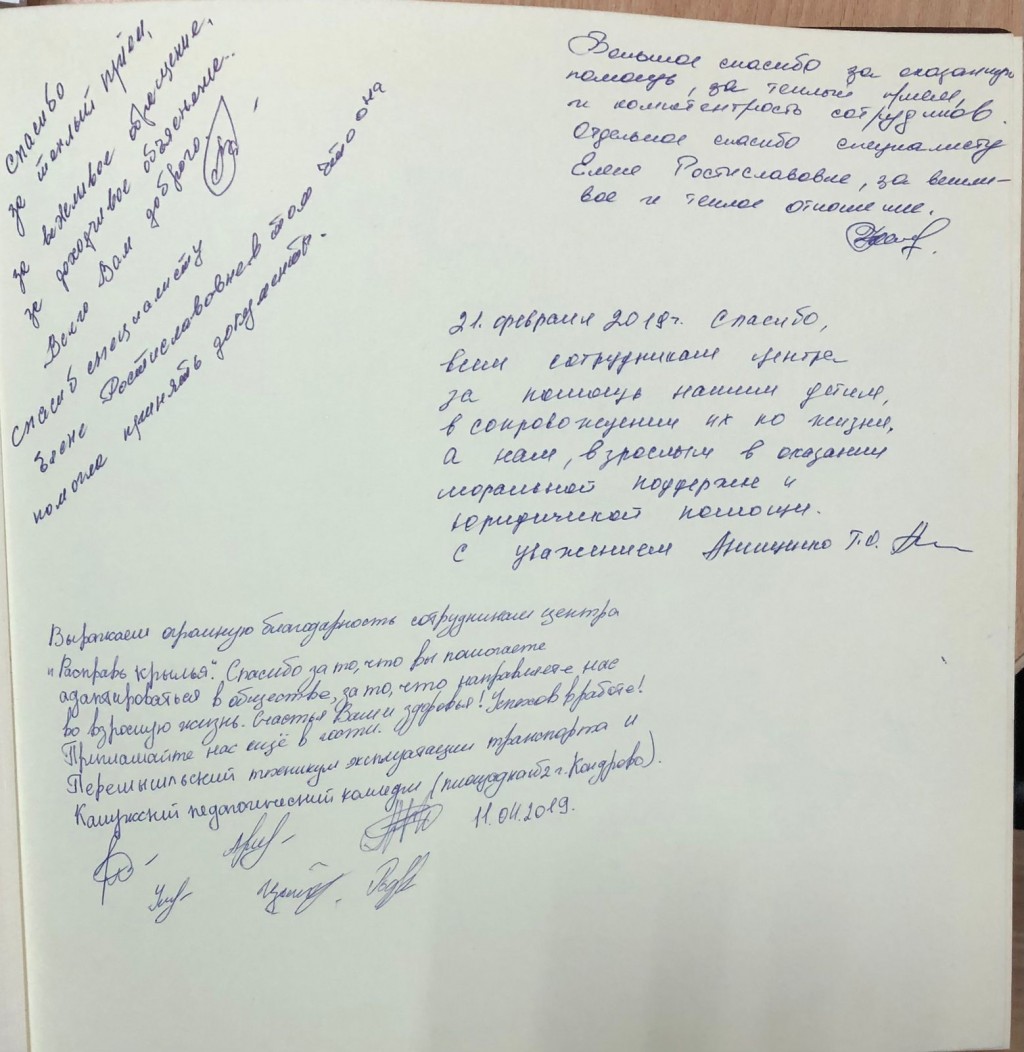 Спасибо
за теплый приём,
за вежливое обращение.
за доходчивое объяснение...
Всего Вам доброго.
спасиб специалисту
Елене Ростиславовне в том что она
помогла принять документы.
Большое спасибо за оказанную
помощь, за теплый прием,
и компетентность сотрудников.
Отдельное спасибо специалисту
Елене Ростиславовне, за вежли-
вое и теплое отношение.
21. февраля 2019г. Спасибо,
всем сотрудникам центра
за помощь нашим детям,
в сопровождении их по жизни,
а нам, взрослым в оказании
моральной поддержки и
юридической помощи.
С уважением Анищенко Т.О.
Выражаем огромную благодарность сотрудникам центра
"Расправь крылья". Спасибо за то, что вы помогаете
адаптироваться в обществе, за то, что направляете нас
во взрослую жизнь. Счастья Вам и здоровья! Успехов в работе!
Приглашайте нас ещё в гости.
Перемышльский техникум эксплуатации транспорта и
Калужский педагогический колледж (площадка №2 г. Кондрово).
11.04.2019.